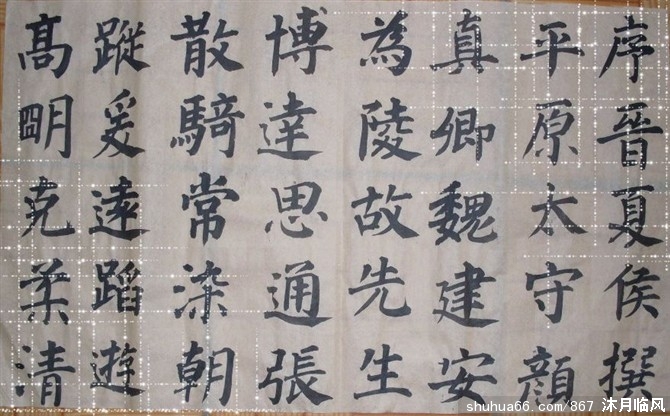 序晉夏侯撰
平原太守顔
真卿魏建安
為陵故先生
博達思通張
散騎常染朝
蹤爰遠蹈遊
高明克柔清
shuhua66.com/867 沐月临风